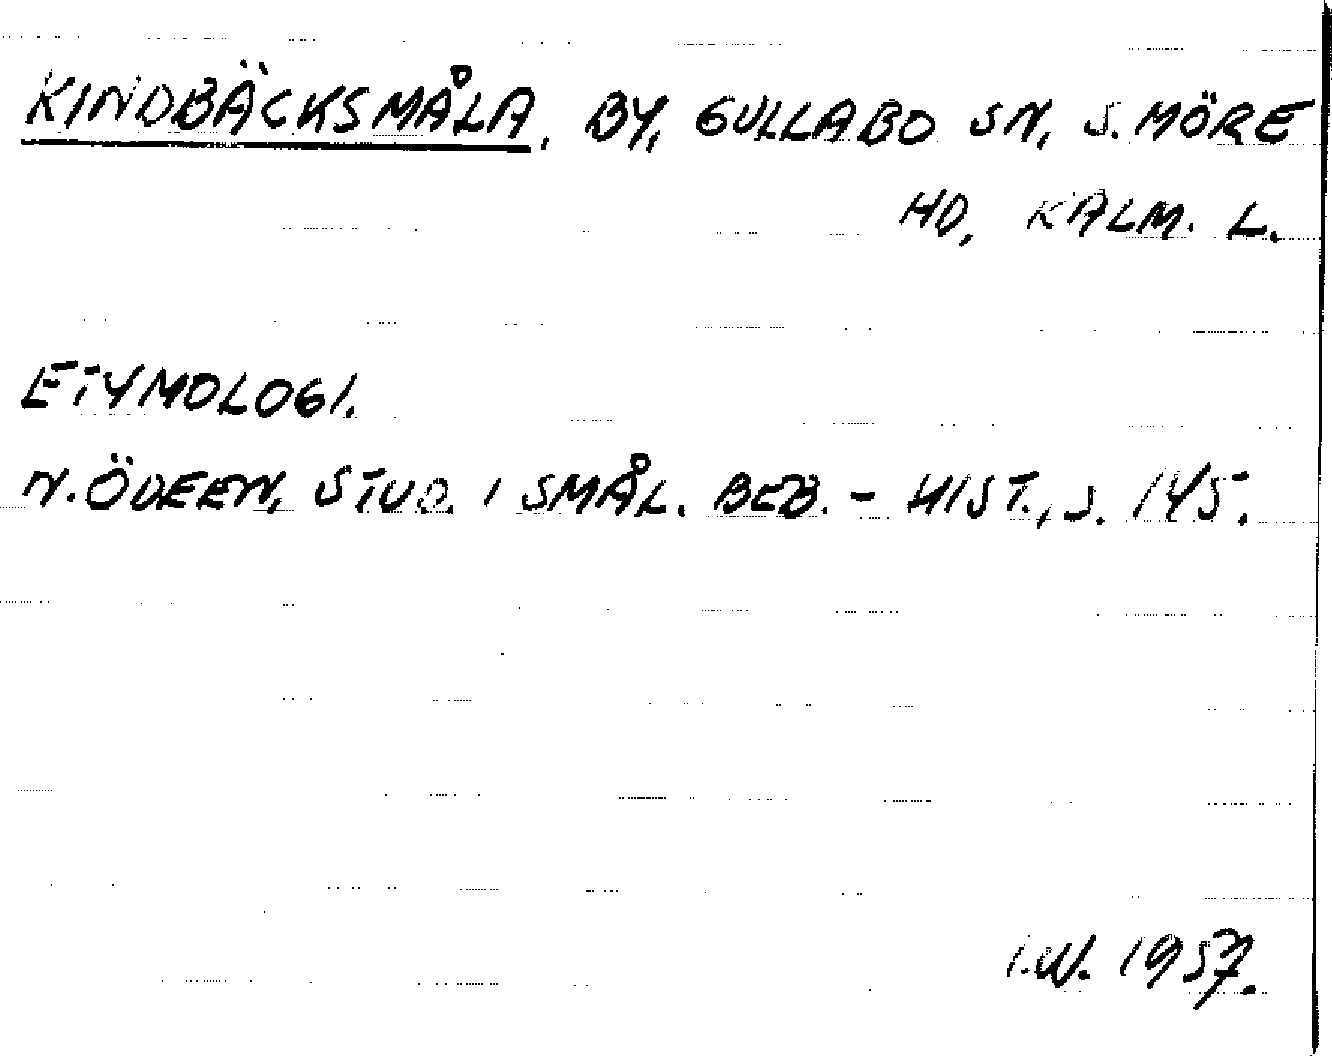 KINDBÄCKSMÅLA, BY, GULLABO SN, S. MÖRE
HD, KALM. L.
ETYMOLOGI.
N. ÖDEEN, STUD. I SMÅL. BEB. - HIST., S. 145.
I.W. 1957.